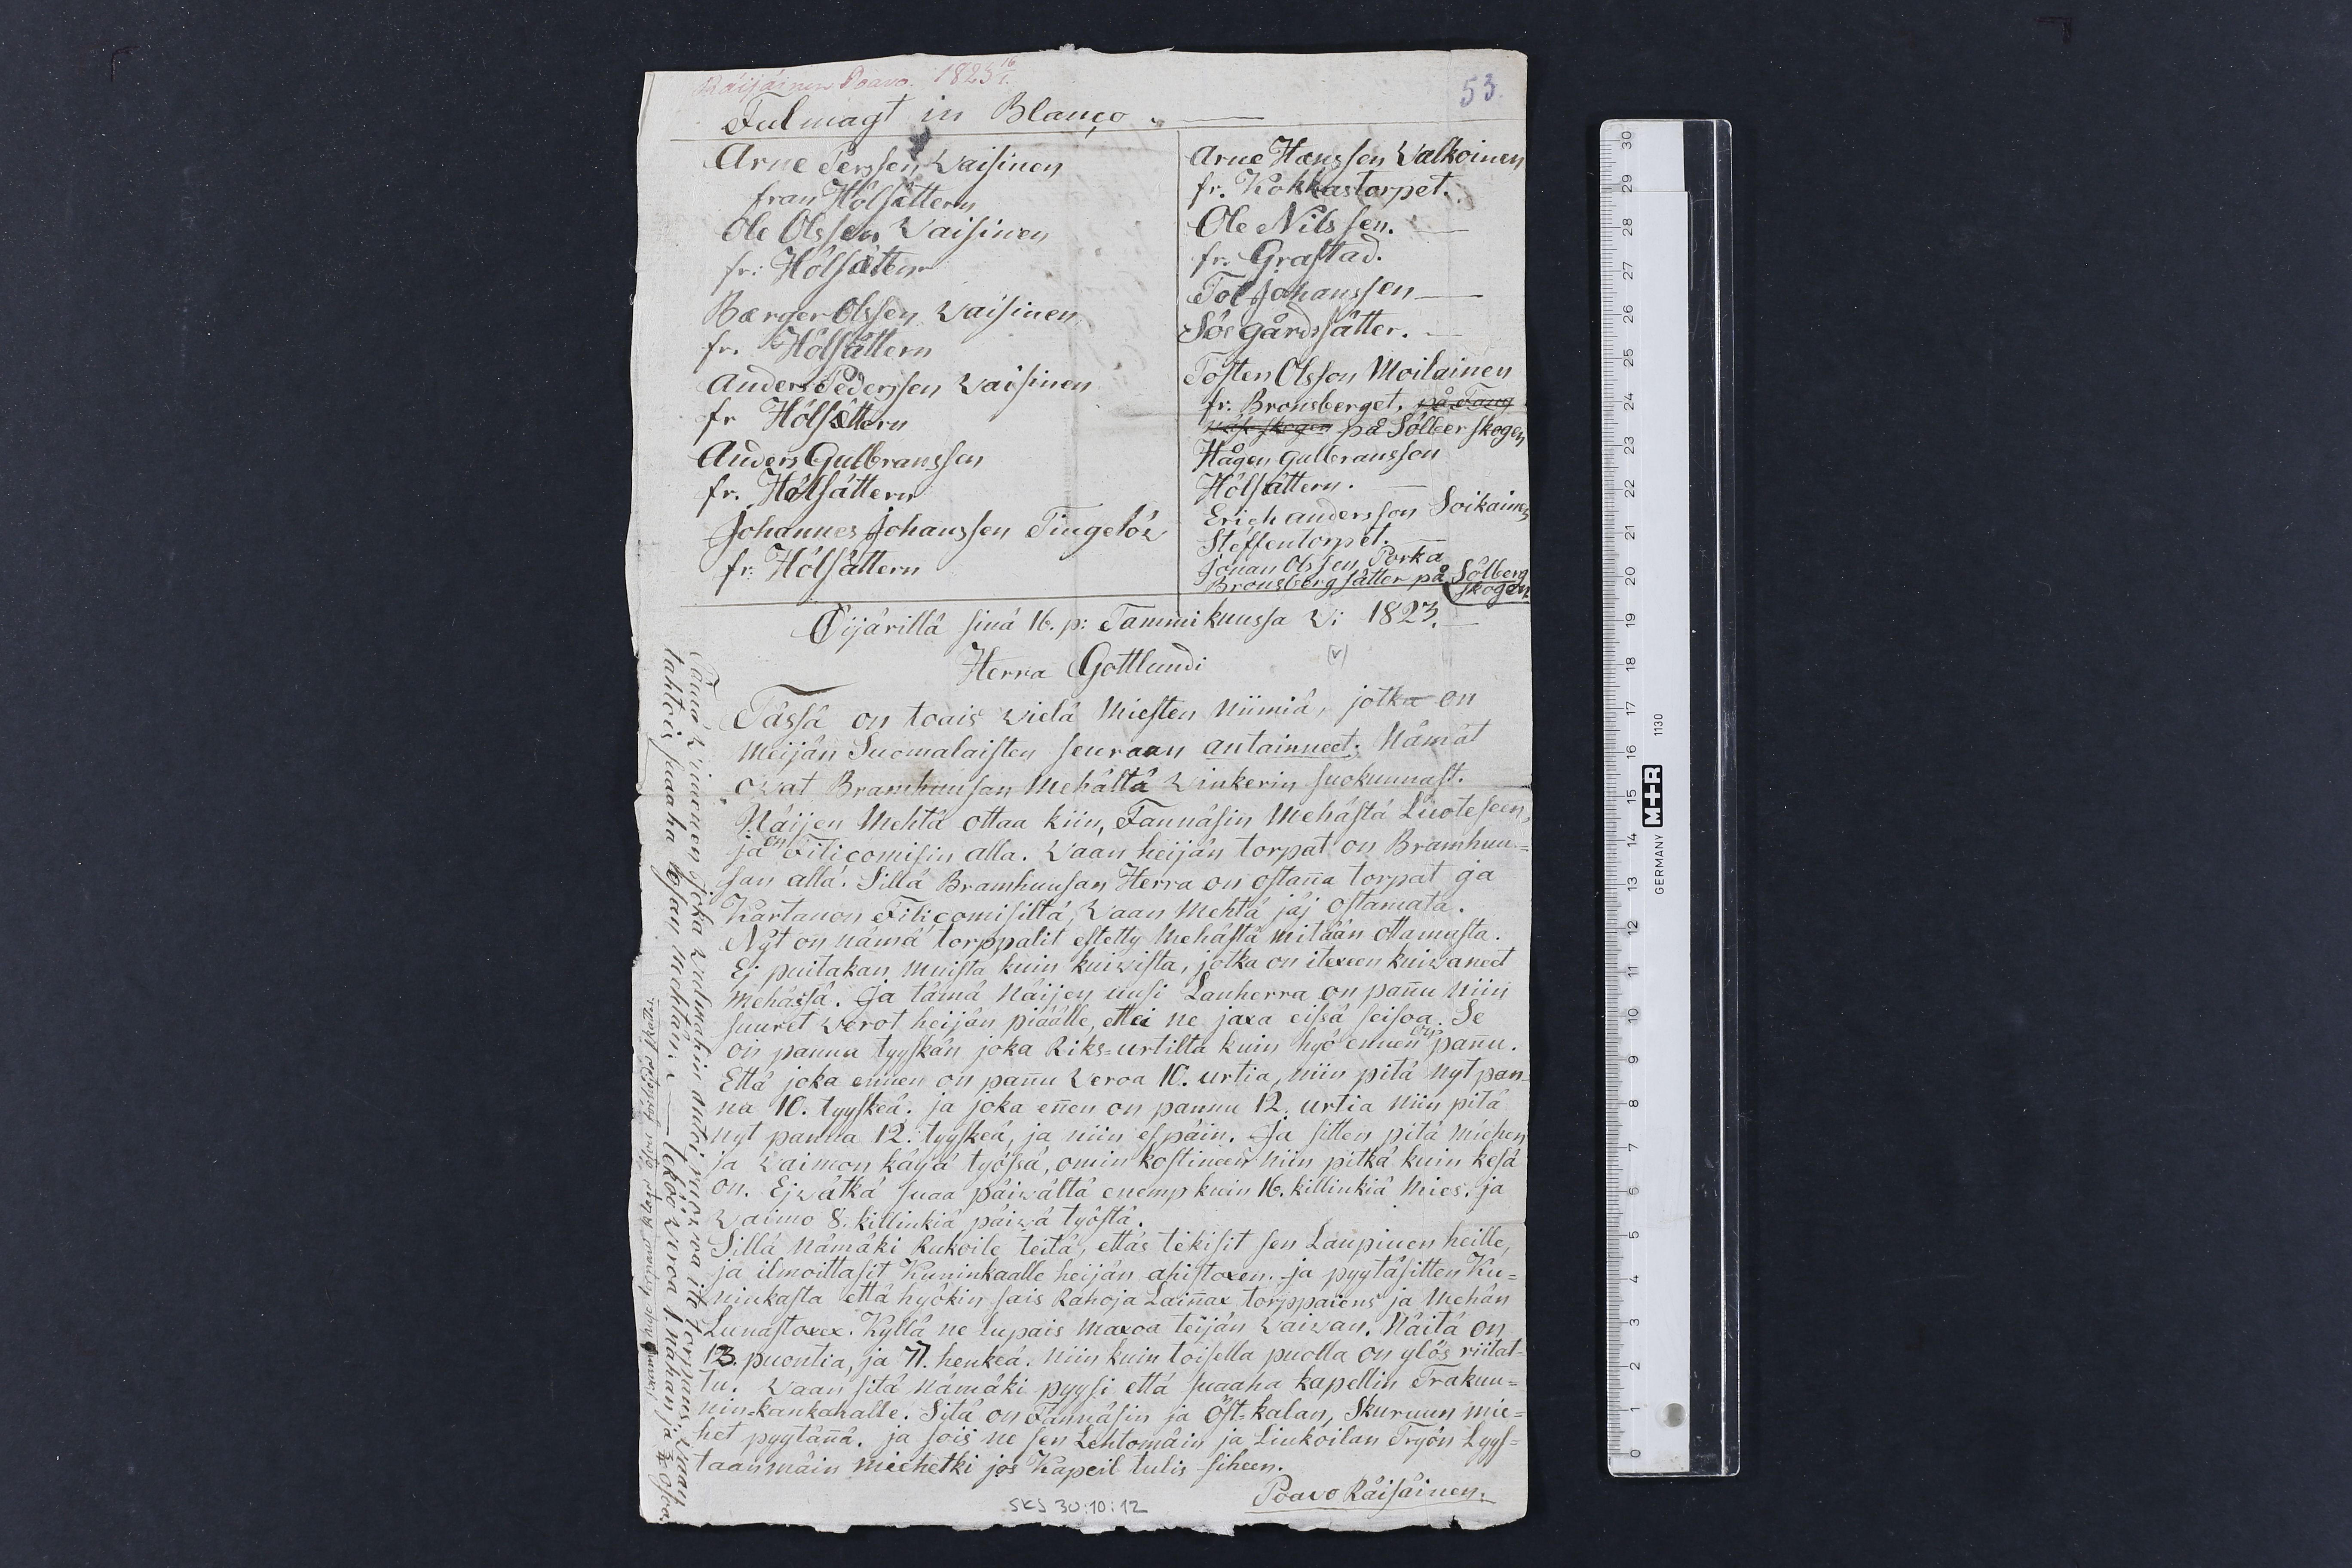 Räisäinen Poavo. 1823 16/1.
53.
Fulmagt in Blanco.
Arne Perssen Waisinen
fran Hölsättern
Ole Olssen Waisinen
fr: Hölsättern
Bærger Olssen Waisinen
fr. Hölsättern
Anders Pederssen Waisinen
fr Hölsättern
Anders Gulbranssen
fr. Hölsättern
Johannes Johanssen Tingelöz
fr: Hölsättern
Arne Hanssen Walkoinen
fr. Kokkastorpet.
Ole Nilssen.
fr. Grastad.
Tol Johanssen
Söegårdssätter.
Tosten Olsson Moilainen
fr. Bronsberget. på
på Sölberskogen
Hågen Gulbransson
Hölsättern.
Erich andersson Soikainen
Steffentorpet.
Johan Olssen Porka
Bronsbergsätter på Sölberg
skogen
Öijärillä sinä 16. p: Tammikuussa W: 1823.
Herra Gottlundi (v)
Tässä on toais vielä Miesten Niimiä, jotka on
Meijän Suomalaisten seuraan antainneet. Nämät
owat Bramhuusan Mehältä Winkerin suokunnast.
Näijen Mehtä ottaa kiin, Fannäsin Mehästä Luoteseen,
ja on Filicomisin alla. Waan heijän torpat on Bramhuu=
san alla. Sillä Bramhuusan Herra on ostan̄a torpat ja
Kartanon Filicomisiltä, Waan Mehtä jäj Ostamata.
Nyt on nämä torppalit estetty Mehästä mitään ottamasta.
Ej puitakan Muista kuin kuiwista, jotka on itexeen kuiwaneet
Mehässä. Ja tämä Näijen uusi Lanherra on pan̄u Niin
suuret Werot heijän piäälle, ettei ne jaxa eissä seisoa. Se
on panna tyyskän joka Riks=urtilta kuin hyö ennen on pan̄u.
Että joka ennen on pan̄u Weroa 10. urtia, niin pitä Nyt pan-
na 10. tyyskeä. ja joka en̄en on pannu 12. urtia Niin pitä
Nyt panna 12. tyyskeä, ja niin espäin. Ja sitten pitä Miehen
ja Waimon käyä työssä, omin kostineen niin pitkä kuin kesä
on. Ejwätkä suaa päiwältä enemp kuin 16. killinkiä Mies. ja
Waimo 8. killinkiä päiwä työstä.
Sillä Nämäki Rukoile teitä, ettäs tekisit sen Laupiuen heille,
ja ilmoittasit Kuninkaalle heijän ahistoxen. ja pyytäsitten Ku=
ninkasta että hyökin sais Rahoja Lain̄ax torppaiens ja Mehän
Lunastoxex. Kyllä ne lupais Maxoa teijän Waiwan. Näitä on
13. puontia, ja 71. henkeä. Niin kuin toisella puolla on ylös riitat-
tu. Waan sitä Nämäki pyysi että suaaha kapellin Trakuu=
nin=kankahalle. Sitä on Fannäsin ja Öst=kalan, Skuruun mie=
het pyytän̄ä. ja sois ne sen Lehtomäin ja Linkoilan Tryön Lyys=
taanmäin miehetki jos Kapeil tulis siheen.
Poavo Räisäinen.
SKS 30:10:12